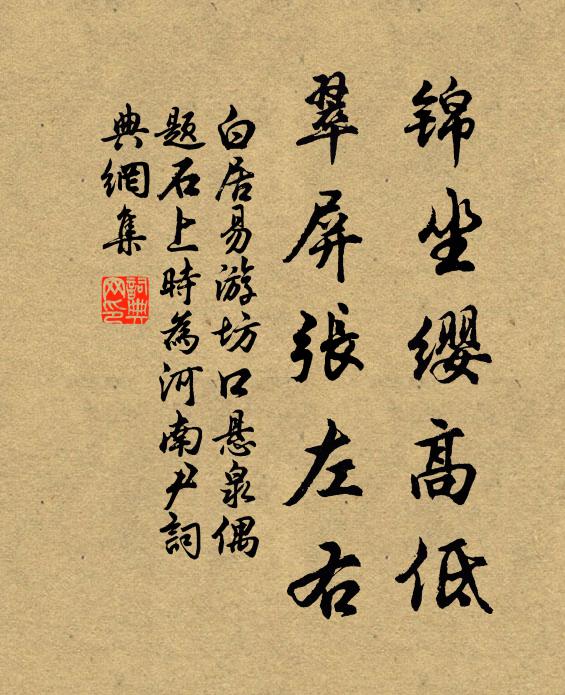 锦坐缨高低
翠屏張左右
白居易游坊口悬泉偶
题石上時為河南尹詞
典網集
詞典
网印